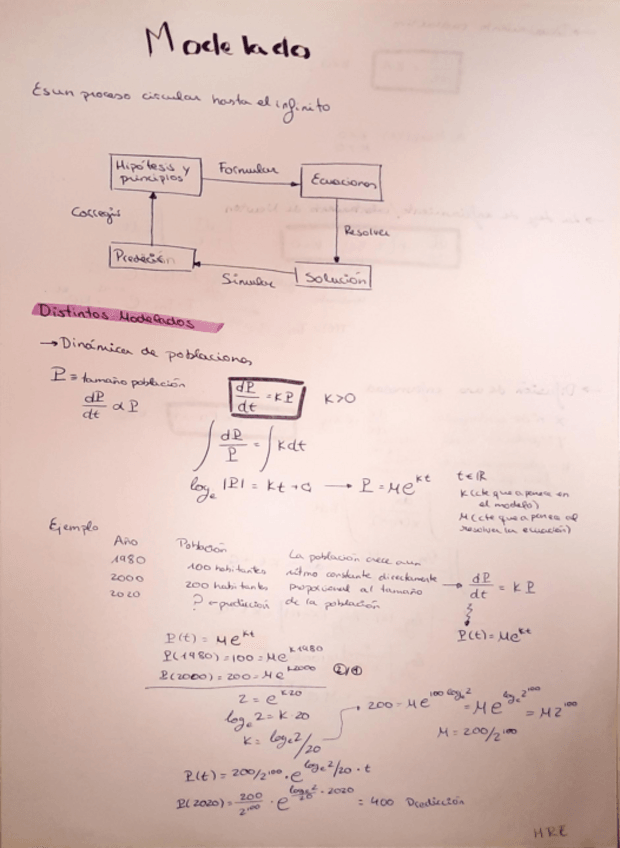 Modelado
Es un proceso circular hasta el infinito
Hipótesis y principios
Formular
Ecuaciones
Corregir
Resolver
Predicción
Simular
Solución
Distintos Modelados
→ Dinámica de poblaciones
P = tamaño población
dP/dt = KP K>0
dP/dt α P
∫ dP/P = ∫ k dt
log_e |P| = Kt + C → P = Me^{Kt} t ∈ ℝ
K (cte que aparece en
el modelo)
M (cte que aparece al
resolver la ecuación)
Ejemplo
Año Población
1980 100 habitantes
2000 200 habitantes
2020 ? = predicción
La población crece a un
ritmo constante directamente
proporcional al tamaño
de la población
→ dP/dt = KP
P(t) = Me^{Kt}
P(t) = Me^{Kt}
P(1980) = 100 = Me^{K1980}
P(2000) = 200 = Me^{K2000} ②/①
2 = e^{K20}
log_e 2 = K·20
K = log_e 2/20
→ 200 = Me^{100 log_e 2} = Me^{log_e 2^{100}} = M2^{100}
M = 200/2^{100}
P(t) = 200/2^{100} · e^{log_e 2/20 · t}
P(2020) = 200/2^{100} · e^{log_e 2/20 · 2020} = 400 Predicción
MRE